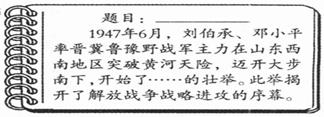 题目：
1947年6月，刘伯承、邓小平
率晋冀鲁豫野战军主力在山东西
南地区突破黄河天险，迈开大步
南下，开始了……的壮举。此举揭
开了解放战争战略进攻的序幕。